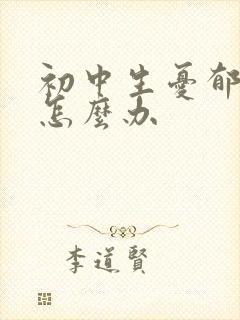 初中生憂郁
怎麼办
李道賢